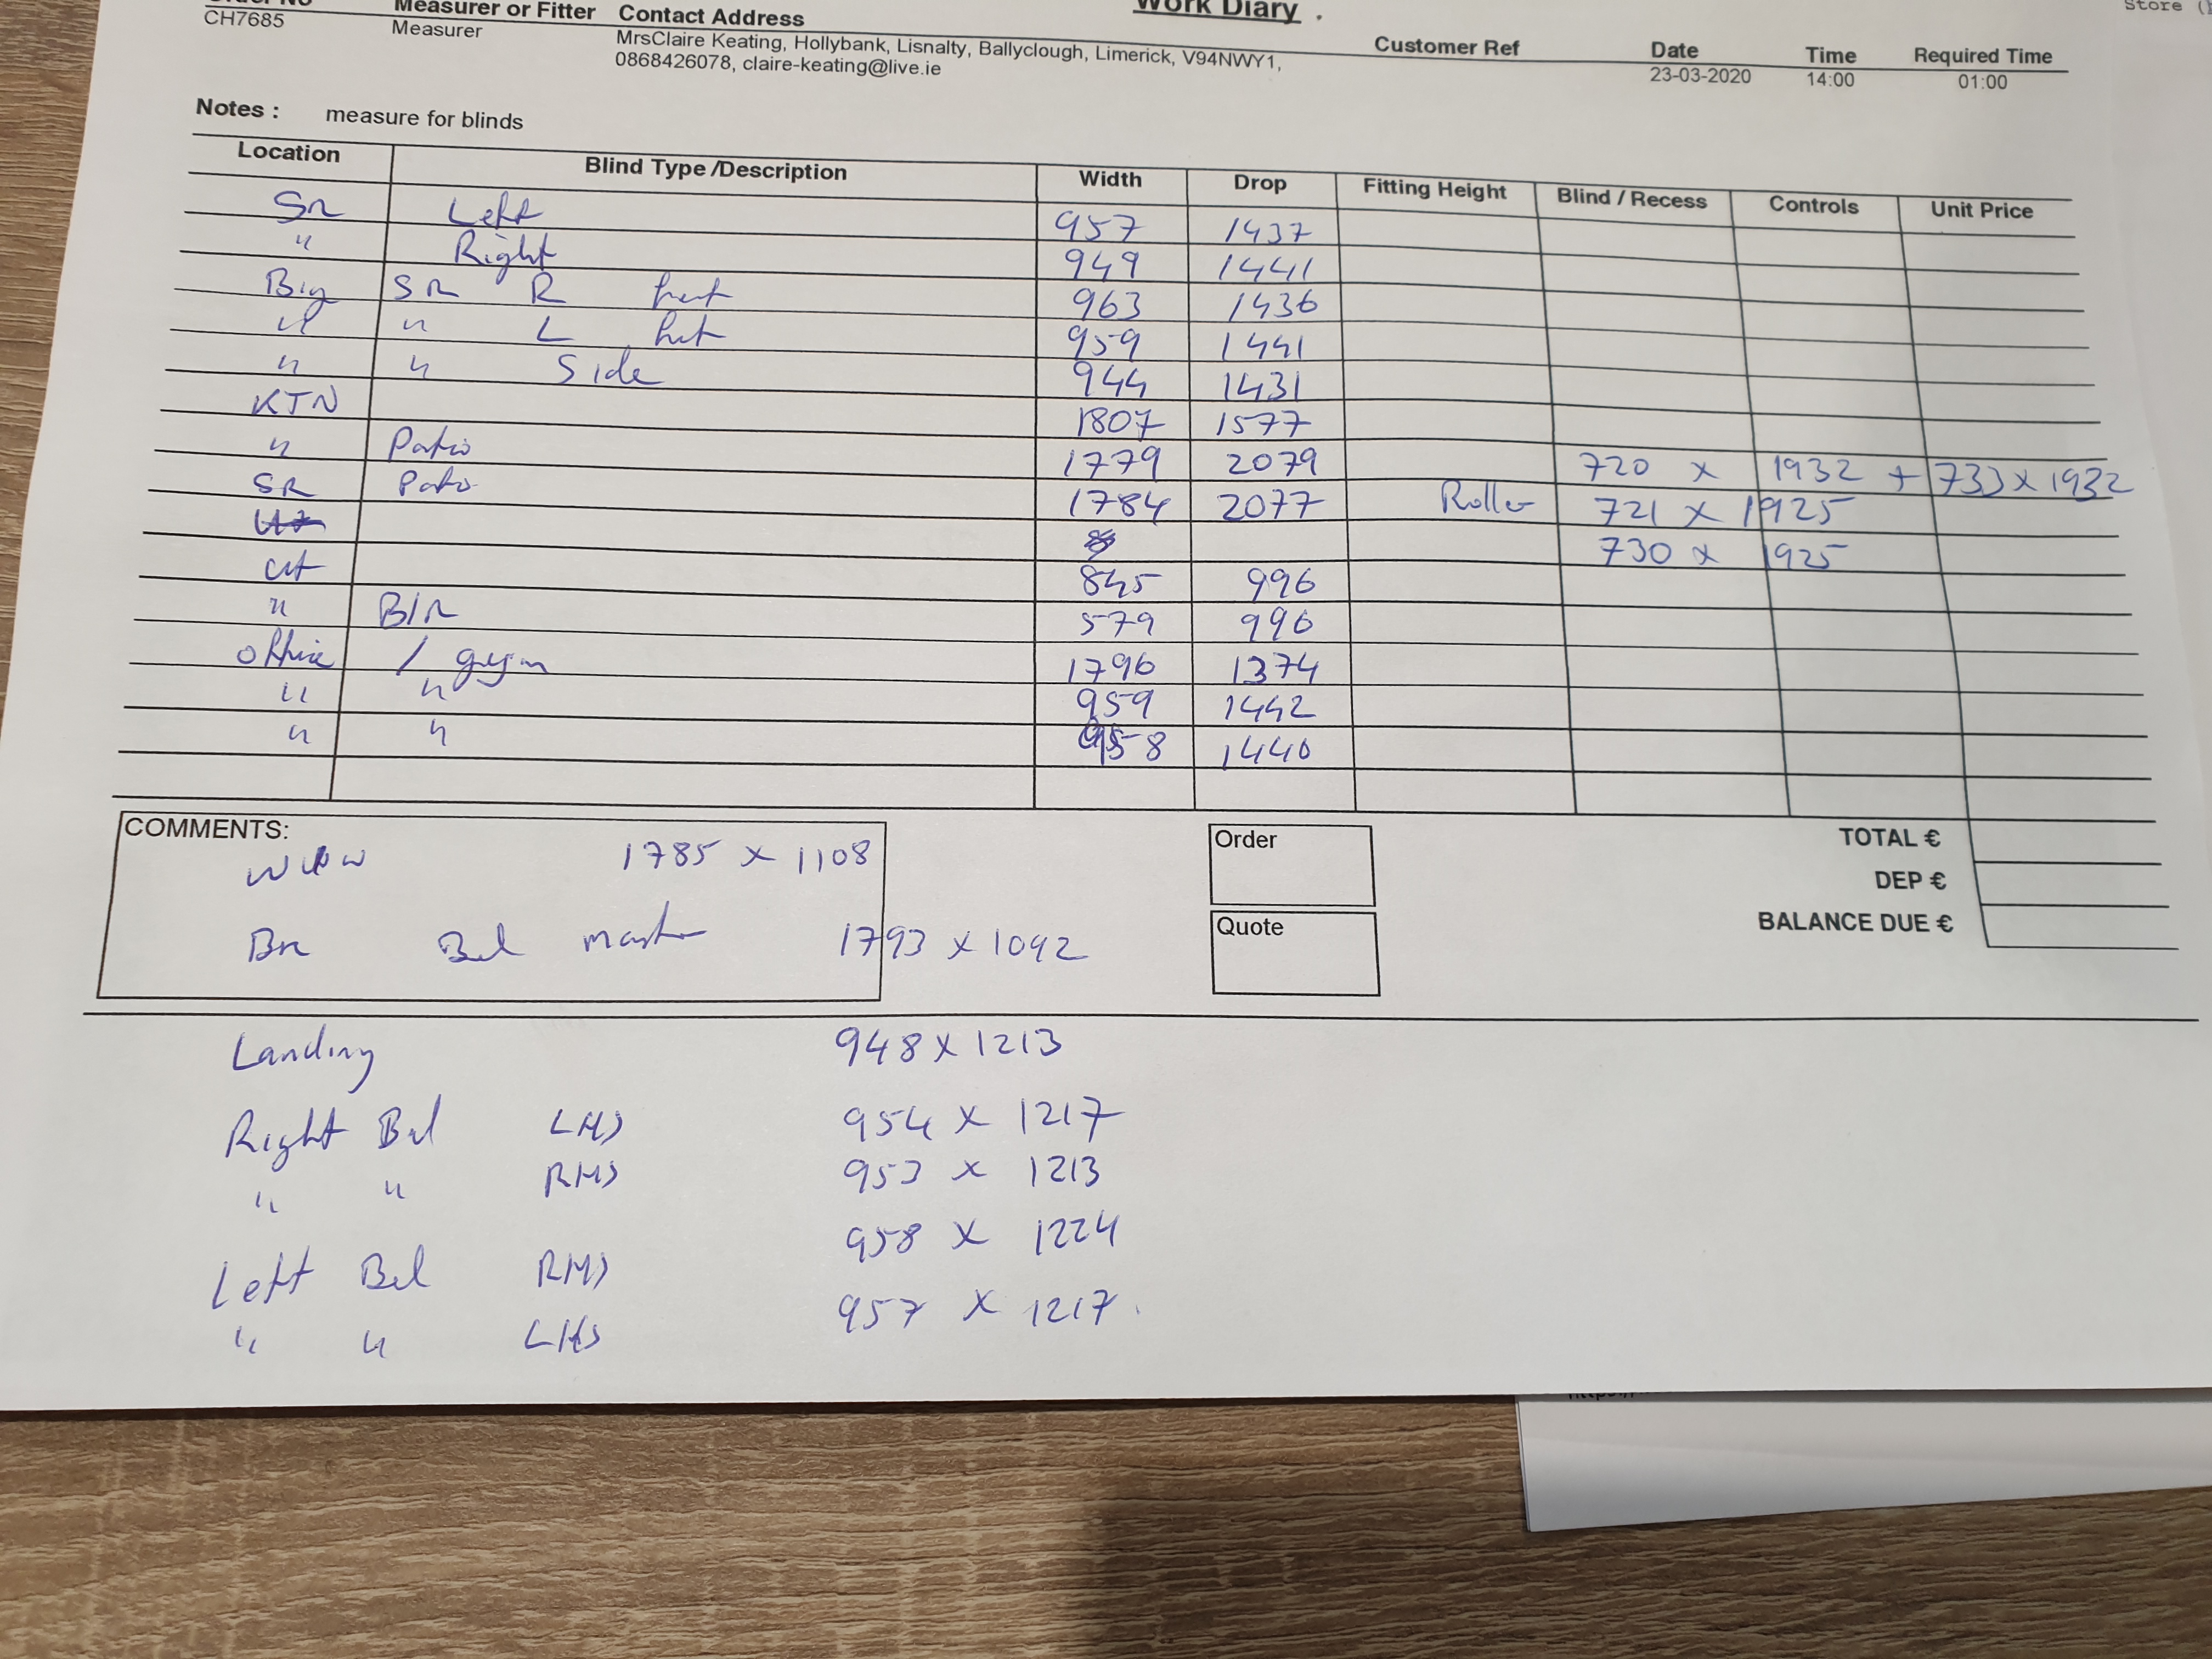 Work Diary .
Store (
Order No Measurer or Fitter Contact Address Customer Ref Date Time Required Time
CH7685 Measurer MrsClaire Keating, Hollybank, Lisnalty, Ballyclough, Limerick, V94NWY1, 23-03-2020 14:00 01:00
0868426078, claire-keating@live.ie
Notes : measure for blinds
Location Blind Type /Description Width Drop Fitting Height Blind / Recess Controls Unit Price
SR Left 957 1437
" Right 949 1441
Big SR R 963 1436
" " L 959 1441
" " Side 944 1431
KTN 1807 1577
" Patio 1779 2079 720 x 1932 + 733 x 1932
SR Patio 1784 2077 Roller 721 x 1925
730 x 1925
845 996
" 579 996
office / gym 1796 1374
" " 959 1442
" " 958 1440
COMMENTS:
1785 x 1108
Order
TOTAL €
DEP €
Quote
BALANCE DUE €
Bed master 1793 x 1092
Landing 948 x 1213
Right Bed LHS 954 x 1217
" " RHS 953 x 1213
Left Bed RHS 958 x 1224
" " LHS 957 x 1217